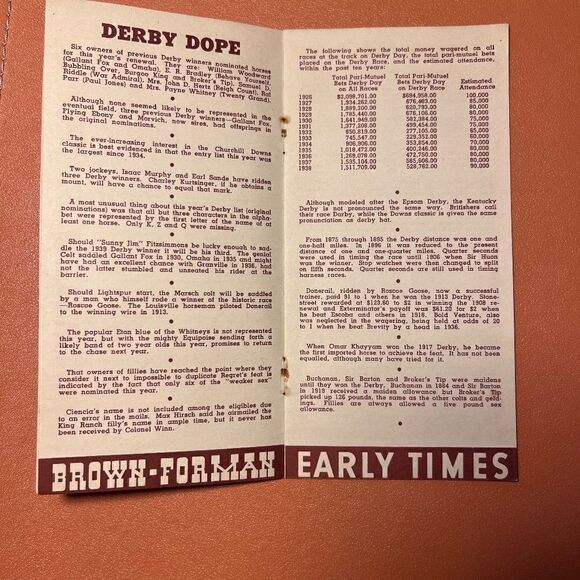 DERBY DOPE
Six owners of previous Derby winners nominated horses
for this year's renewal. They are: William Woodward
(Gallant Fox and Omaha), E. R. Bradley (Behave Yourself,
Bubbling Over, Burgoo King and Broker's Tip), Samuel D.
Riddle (War Admiral), Mrs. John D. Hertz (Reigh Count), Hal
Parr (Paul Jones) and Mrs. Payne Whitney (Twenty Grand).
•
Although none seemed likely to be represented in the
eventual field, three previous Derby winners—Gallant Fox,
Flying Ebony and Morvich, now sires, had offsprings in
the original nominations.
•
The ever-increasing interest in the Churchill Downs
classic is best evidenced in that the entry list this year was
the largest since 1934.
•
Two jockeys, Isaac Murphy and Earl Sande have ridden
three Derby winners. Charley Kurtsinger, if he obtains a
mount, will have a chance to equal that mark.
•
A most unusual thing about this year's Derby list (original
nominations) was that all but three characters in the alpha-
bet were represented by the first letter of the name of at
least one horse. Only K, Z and Q were missing.
•
Should "Sunny Jim" Fitzsimmons be lucky enough to sad-
dle the 1939 Derby winner it will be his third. The genial
Celt saddled Gallant Fox in 1930, Omaha in 1935 and might
have had an excellent chance with Granville in 1936, had
not the latter stumbled and unseated his rider at the
barrier.
•
Should Lightspur start, the Marsch colt will be saddled
by a man who himself rode a winner of the historic race
—Roscoe Goose. The Louisville horseman piloted Donerail
to the winning wire in 1913.
•
The popular Eton blue of the Whitneys is not represented
this year, but with the mighty Equipoise sending forth a
likely band of two year olds this year, promises to return
to the chase next year.
•
That owners of fillies have reached the point where they
consider it next to impossible to duplicate Regret's feat is
indicated by the fact that only six of the "weaker sex"
were nominated this year.
•
Ciencia's name is not included among the eligibles due
to an error in the mails. Max Hirsch said he airmailed the
King Ranch filly's name in ample time, but it never has
been received by Colonel Winn.
BROWN-FORMAN
The following shows the total money wagered on all
races at the track on Derby Day, the total pari-mutuel bets
placed on the Derby Race, and the estimated attendance,
within the past ten years:
Total Pari-Mutuel Total Pari-Mutuel
Bets Derby Day Bets Derby Day Estimated
on All Races on Derby Race Attendance
1926 $2,098,701.00 $694,950.00 100,000
1927 1,934,262.00 676,483.00 85,000
1928 1,889,200.00 620,793.00 80,000
1929 1,785,440.00 676,116.00 80,000
1930 1,641,949.00 582,284.00 75,000
1931 1,277,208.00 499,454.00 75,000
1932 850,819.00 277,165.00 65,000
1933 745,547.00 229,352.00 60,000
1934 906,906.00 353,854.00 70,000
1935 1,018,472.00 400,246.00 80,000
1936 1,269,078.00 472,750.00 80,000
1937 1,535,104.00 585,606.00 80,000
1938 1,511,709.00 528,762.00 90,000
•
Although modeled after the Epsom Derby, the Kentucky
Derby is not pronounced the same way. Britishers call
their race Darby, while the Downs classic is given the same
pronunciation as derby hat.
•
From 1875 through 1895 the Derby distance was one and
one-half miles. In 1896 it was reduced to the present
distance of one and one-quarter miles. Quarter seconds
were used in timing the race until 1906 when Sir Huon
was the winner. Stop watches were then changed to split
on fifth seconds. Quarter seconds are still used in timing
harness races.
•
Donerail, ridden by Roscoe Goose, now a successful
trainer, paid 91 to 1 when he won the 1913 Derby. Stone-
street rewarded at $123.60 to $2 in winning the 1908 re-
newal and Exterminator's payoff was $61.20 for $2 when
he beat Escoba and others in 1918. Bold Venture, also
was neglected in the wagering, being held at odds of 20
to 1 when he beat Brevity by a head in 1936.
•
When Omar Khayyam won the 1917 Derby, he became
the first imported horse to achieve the feat. It has not been
equalled, although many have tried for it.
•
Buchanan, Sir Barton and Broker's Tip were maidens
until they won the Derby. Buchanan in 1884 and Sir Barton
in 1919 received a maiden allowance but Broker's Tip
picked up 126 pounds, the same as the other colts and geld-
ings. Fillies are always allowed a five pound sex
allowance.
•
EARLY TIMES